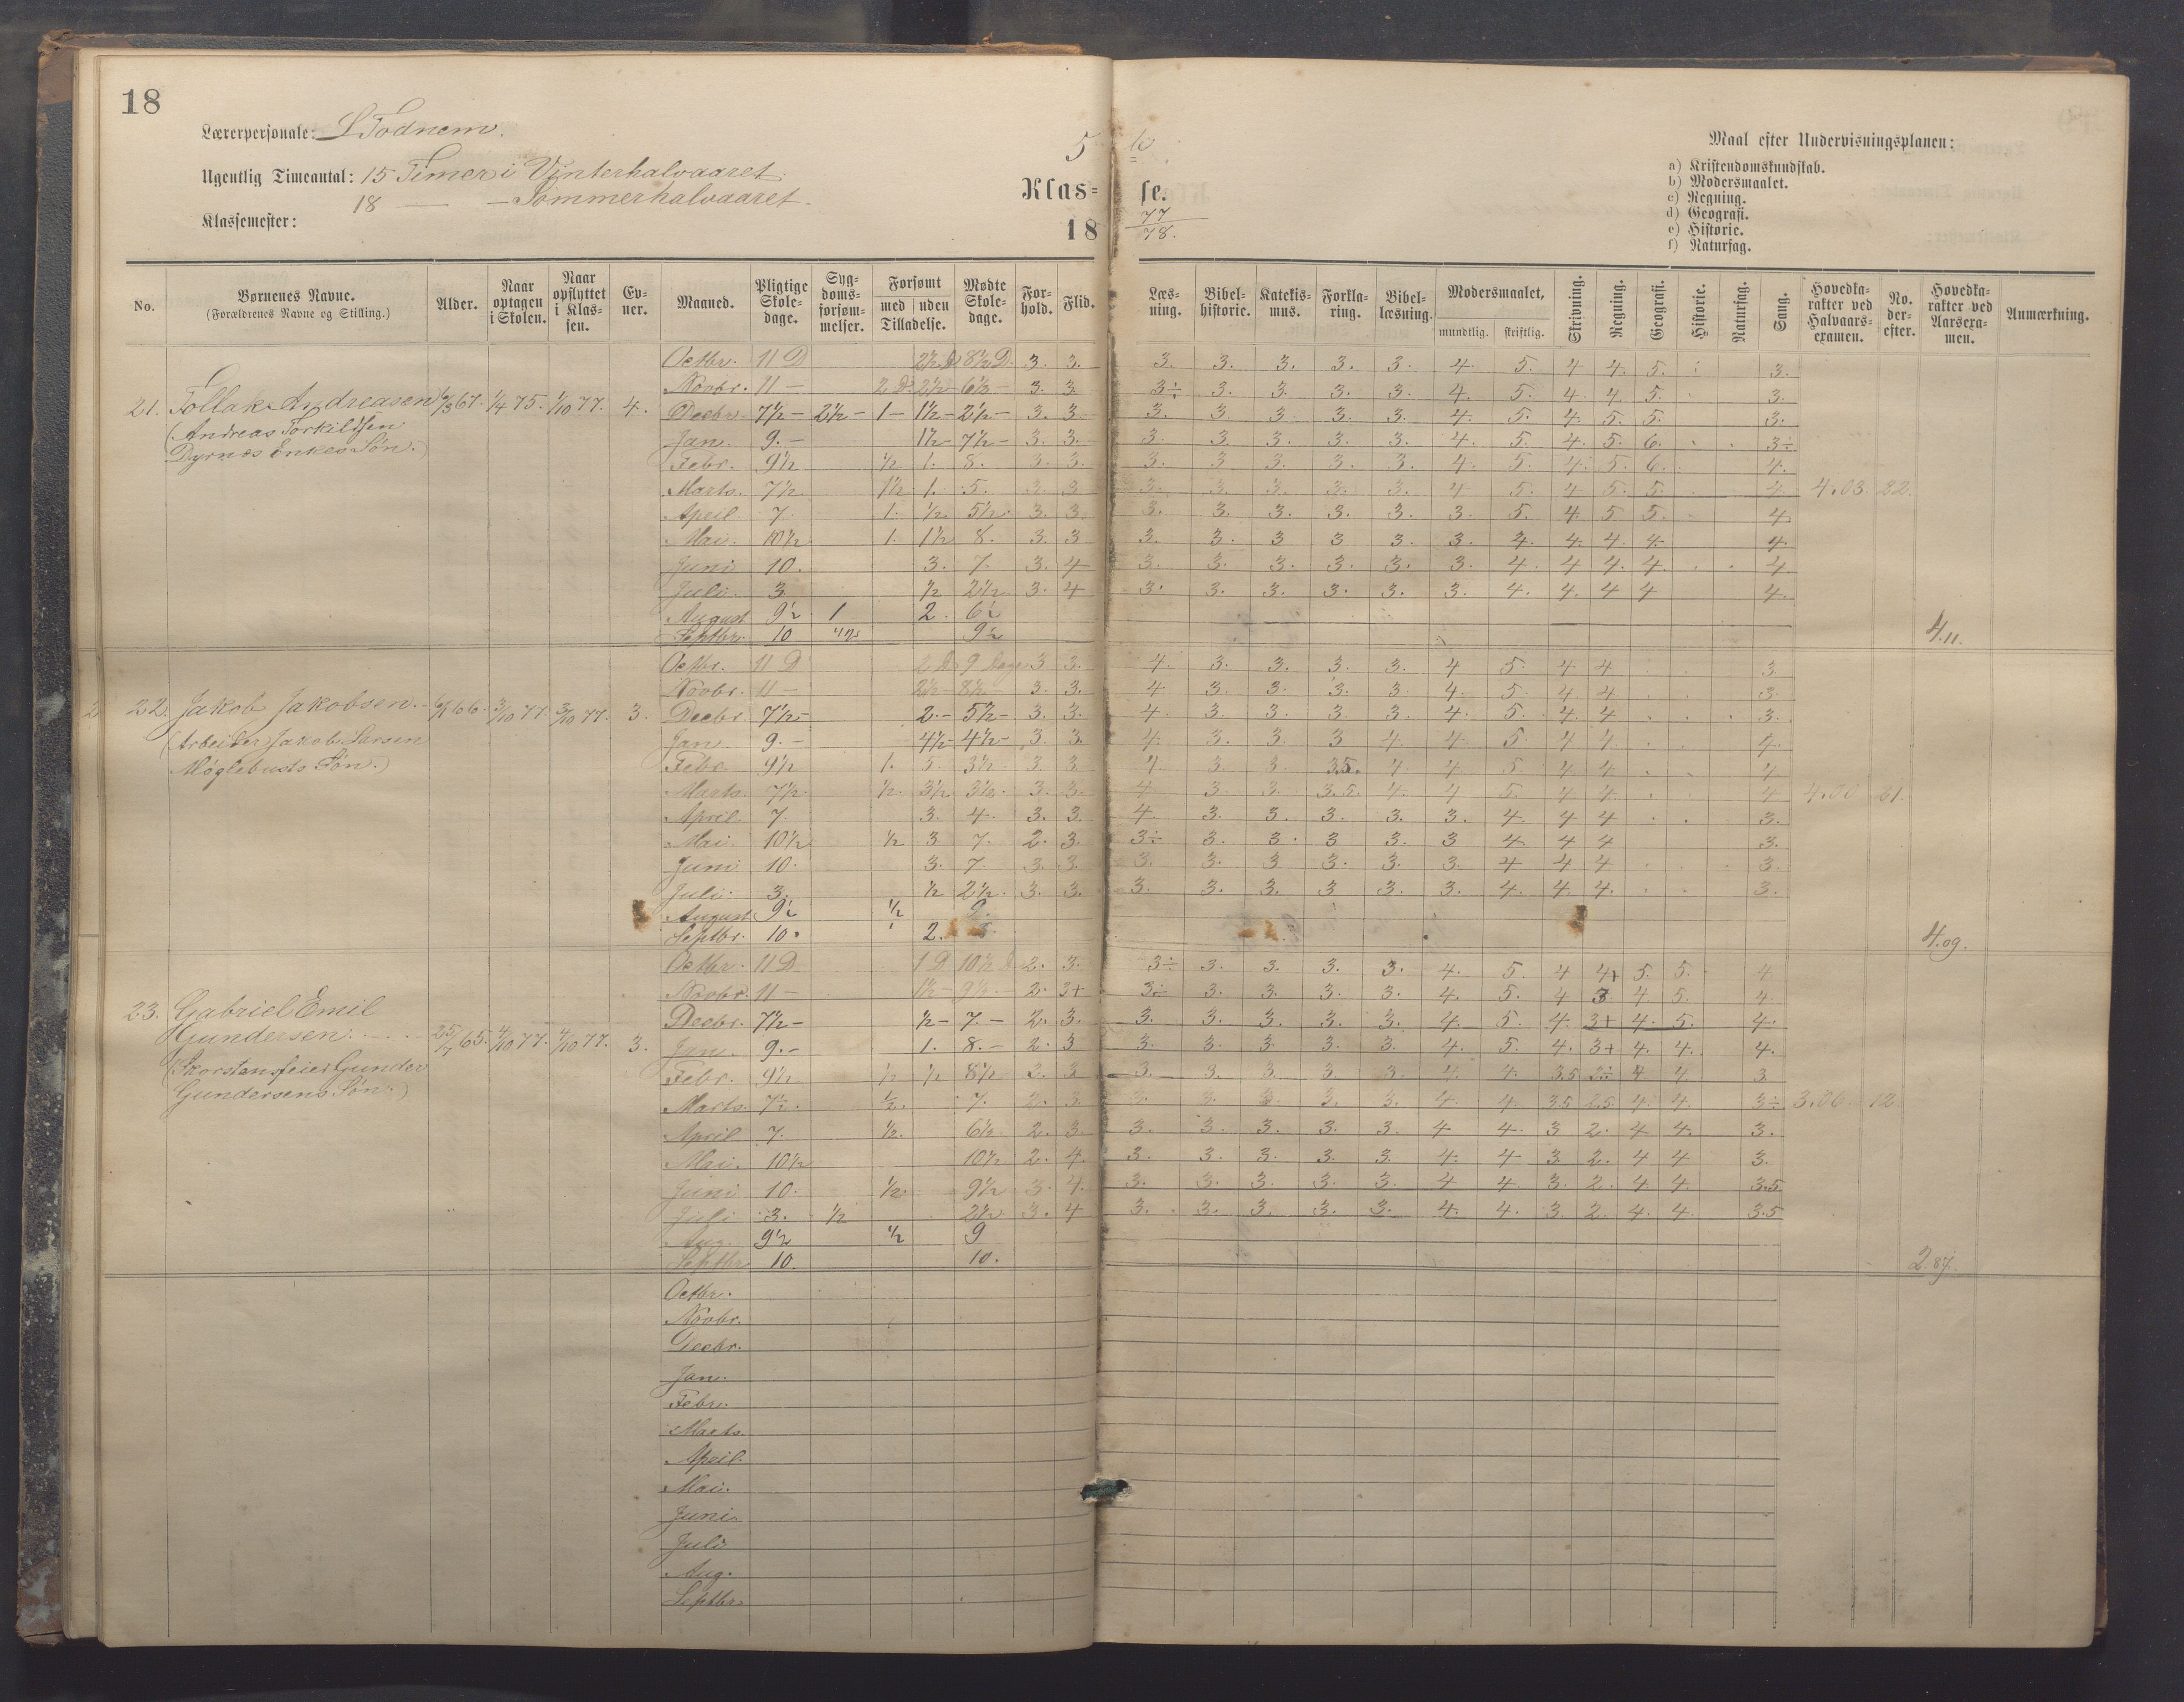 18
Lærerpersonale: L Todnem.
Ugentlig Timeantal: 15 Timer i Vinterhalvaaret.
18 — — Sommerhalvaaret.
Klassemester:
5 b
Klas= se.
18 77/78.
Maal efter Undervisningsplanen:
a) Kristendomskundskab.
b) Modersmaalet.
c) Regning.
d) Geografi.
e) Historie.
f) Naturfag.
No. Børnenes Navne. (Forældrenes Navne og Stilling.) Alder. Naar optagen i Skolen. Naar opflyttet i Klassen. Evner. Maaned. Pligtige Skoledage. Sygdomsforsømmelser. Forsømt med uden Tilladelse. Mødte Skoledage. Forhold. Flid. Læsning. Bibelhistorie. Katekismus. Forklaring. Bibellæsning. Modersmaalet, mundtlig. skriftlig. Skrivning. Regning. Geografi. Historie. Naturfag. Sang. Hovedkarakter ved Halvaarsexamen. No. derefter. Hovedkarakter ved Aarsexamen. Anmærkning.
21. Tollak Andreasen 67. 1/4 75. 1/10 77. 4.
(Andreas Torkildsen
Dyrnes Enkes Søn.)
Octbr. 11 D 2½ D 8½ D. 3. 3. 3. 3. 3. 3. 3. 4. 5. 4 4. 5. 3.
Novbr. 11 — 2 D. 2½ — 6½ — 3. 3. 3÷ 3. 3. 3. 3. 4. 5. 4. 4. 5. 3.
Decbr. 7½ — 2½ — 1 — 1½ — 2½ — 3. 3. 3. 3. 3. 3. 3. 4. 5. 4. 5. 5. 3.
Jan. 9. — 1½ — 7½ — 3. 3. 3. 3. 3. 3. 3. 4. 5. 4. 5. 6. 3÷
Febr. 9½ ½ 1. 8. 3. 3. 3. 3 3. 3. 3. 4. 5. 4. 5. 6. 4.
Marts. 7½ 1½ 1. 5. 3. 3 3. 3. 3. 3. 3. 4 5. 4 5. 5. 4 4.03. 22.
April. 7. 1. ½ 5½ 3. 3. 3. 3. 3. 3. 3. 3. 5. 4. 5 5. 4
Mai. 10½ 1. 1½ 8. 3. 3 3. 3. 3 3 3. 3. 4. 4. 4. 4. 4.
Juni 10. 3. 7. 3. 4 3. 3. 3. 3. 3. 3. 4 4 4. 4. 4.
Juli. 3 ½ 2½ 3. 4 3. 3. 3. 3. 3. 3. 4. 4. 4 4 4.
August 9½ 1 2. 6½
Septbr. 10 9½ 4.11.
22. Jakob Jakobsen. 66. 3/10 77. 3/10 77. 3.
(Arbeider Jakob Larsen
Møglebusts Søn.)
Octbr. 11 D 2 D 9 Dage 3 3. 4. 3. 3. 3. 3. 4 5. 4. 4 3
Novbr. 11 — 2½ — 8½ — 3. 3. 4 3. 3. 3. 3. 4. 5. 4 4 3.
Decbr 7½ — 2. — 5½ — 3. 3. 4. 3. 3. 3. 3. 4. 5. 4. 4 3.
Jan. 9. — 4½ — 4½ — 3. 3. 4. 3. 3. 3 4. 4. 5. 4 4. 4.
Febr. 9½ 1. 5. 3½ 3. 3 4 3. 3. 3.5. 4. 4 5. 4 4 4
Marts. 7½ ½. 3½ 3½. 3. 3. 4 3. 3. 3.5. 4. 4 5. 4 4. 4 4.00 21.
April. 7. 3. 4. 3. 3. 4. 3. 3. 3. 3. 3. 4. 4 4 3.
Mai. 10½ ½ 3 7. 2. 3. 3÷ 3. 3. 3 3. 3 4. 4 4 3.
Juni 10. 3. 7. 3. 3. 3. 3. 3 3. 3. 3. 4 4 4 3.
Juli. 3. ½ 2½ 3. 3. 3. 3. 3. 3 3. 3. 4. 4. 4. 3.
August 9½ ½ 9.
Septbr. 10. 2. 4.09.
23. Gabriel Emil
Gundersen. 25/7 65. 4/10 77. 4/10 77. 3.
(Skorstensfeier Gunder
Gundersens Søn.)
Octbr. 11 D 1 D 10½ D 2. 3. 3÷ 3. 3. 3. 3. 4. 5. 4 4+ 5. 5. 4.
Novbr. 11 — 1½ — 9½ — 2. 3+ 3÷ 3. 3. 3. 3. 4. 5. 4 3 4. 5. 4.
Decbr. 7½ — ½ — 7. — 2. 3. 3. 3. 3. 3. 3. 4. 5. 4. 3+ 4. 5. 4.
Jan. 9. — 1. 8. — 2. 3 3. 3. 3. 3. 3. 4. 5. 4. 3+ 4. 4. 4.
Febr. 9½ ½ ½ 8½ 2. 3 3. 3. 3. 3. 3. 4. 4. 3.5 4 4 3
Marts. 7½. ½. 7. 2. 3. 3. 3. 3. 3. 3. 4. 4. 3.5 2.5. 4. 4. 3÷ 3.06. 12.
April 7. ½. 6½ 2. 3. 3. 3. 3. 3. 3. 4 4. 3 2. 4 4. 3.
Mai. 10½ 10½ 2. 4. 3. 3. 3. 3. 3. 4. 4 3. 2. 4 4 3.
Juni 10. ½. 9½ 3. 4. 3. 3. 3. 3. 3. 4 4. 3. 2. 4. 4. 3.5
Juli 3. ½ 2½ 3. 4 3. 3. 3. 3. 3. 4. 4. 3. 2. 4. 4. 3.5
Aug. 9½ ½ 9
Septbr. 10. 10. 2.87.
Octbr.
Novbr.
Decbr.
Jan.
Febr.
Marts.
April.
Mai.
Juni.
Juli
Aug.
Septbr.